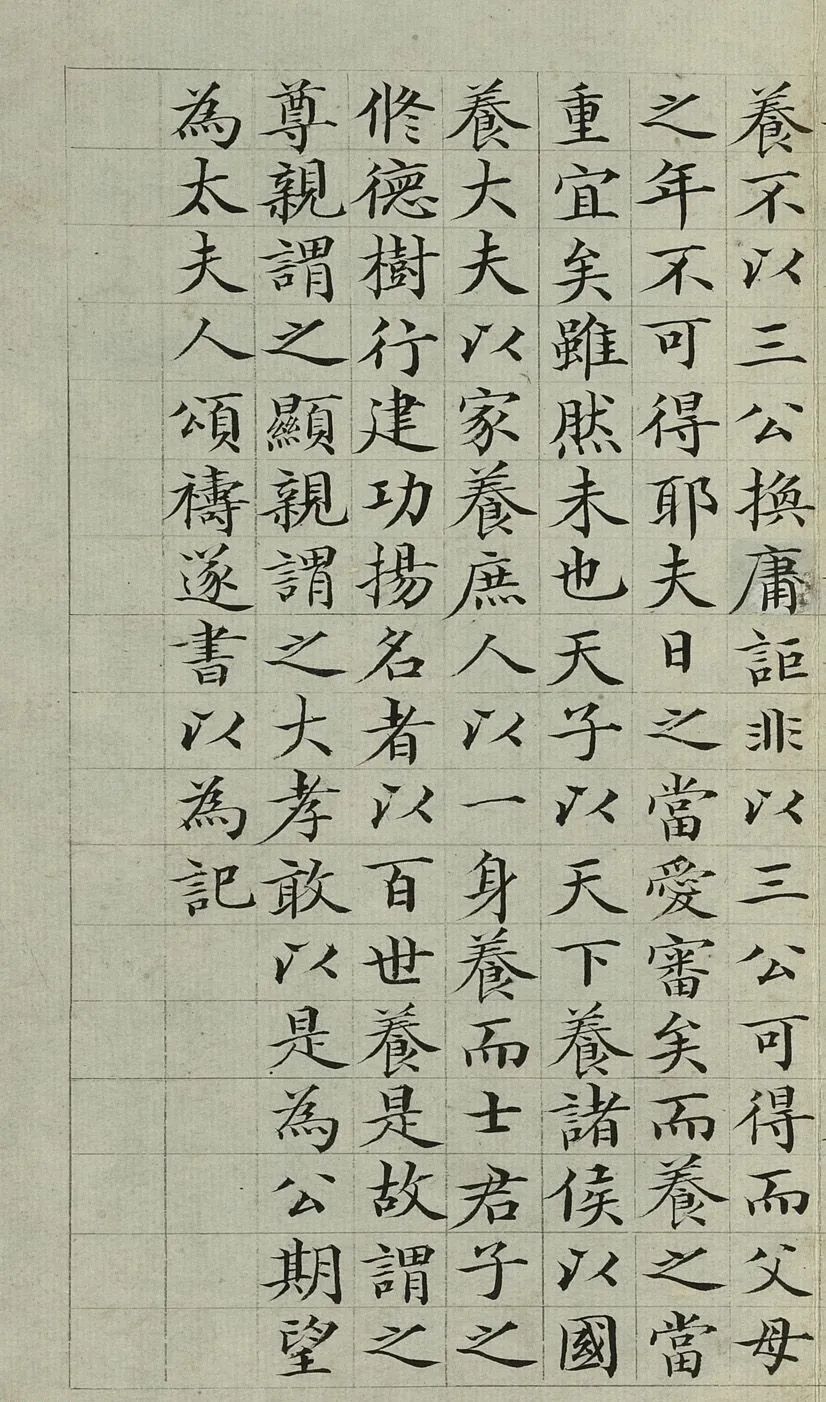 養不以三公換庸詎非以三公可得而父母
之年不可得耶夫日之當愛審矣而養之當
重宜矣雖然未也天子以天下養諸侯以國
養大夫以家養庶人以一身養而士君子之
修德樹行建功揚名者以百世養是故謂之
尊親謂之顯親謂之大孝敢以是為公期望
為太夫人頌禱遂書以為記